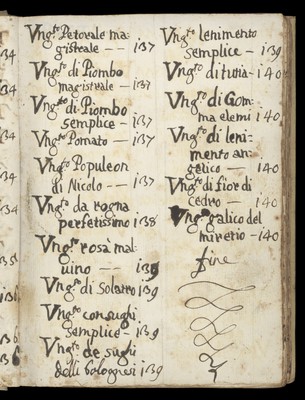 Vng.to Petorale ma-
gistrale - - 137
Vng.to di Piombo
magistrale - 137
Vng.to di Piombo
semplice - 137
Vng.to Pomato - 137
Vng.to Populeon
di Nicolo - - 137
Vng.to da rogna
perfetissimo 138
Vng.to rosà mal-
uino - - 139
Vng.to di Solatro 139
Vng.to con sughi
semplice - 139
Vng.to de sughi
delli bolognesi 139
Vng.to lenimento
semplice - 139
Vng.to di tutia - 140
Vng.to di Gom-
ma elemi 140
Vng.to di leni-
mento an-
gelico - 140
Vng.to di fior di
cedro - 140
Vng.to galico del
- 140
fine